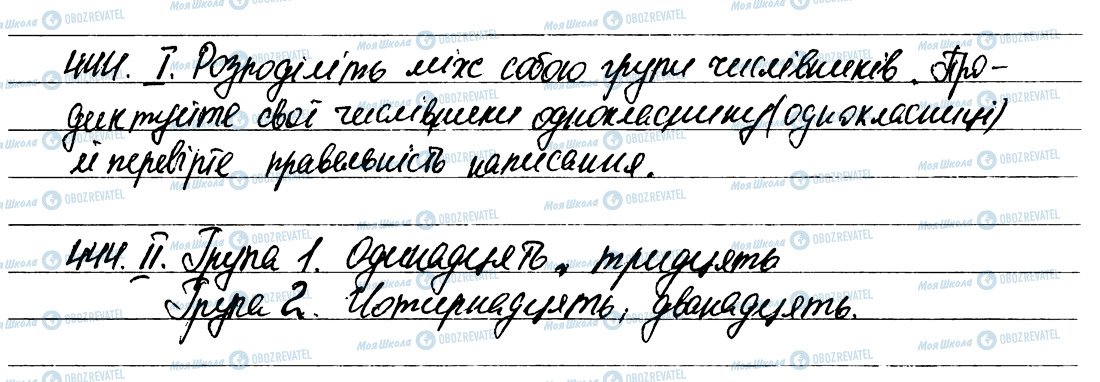 444. I. Розподіліть між собою групи числівників. Про-
диктуйте свої числівники однокласнику (однокласниці)
й перевірте правильність написання.
444. II. Група 1. Одинадцять, тридцять
Група 2. Чотирнадцять, дванадцять.